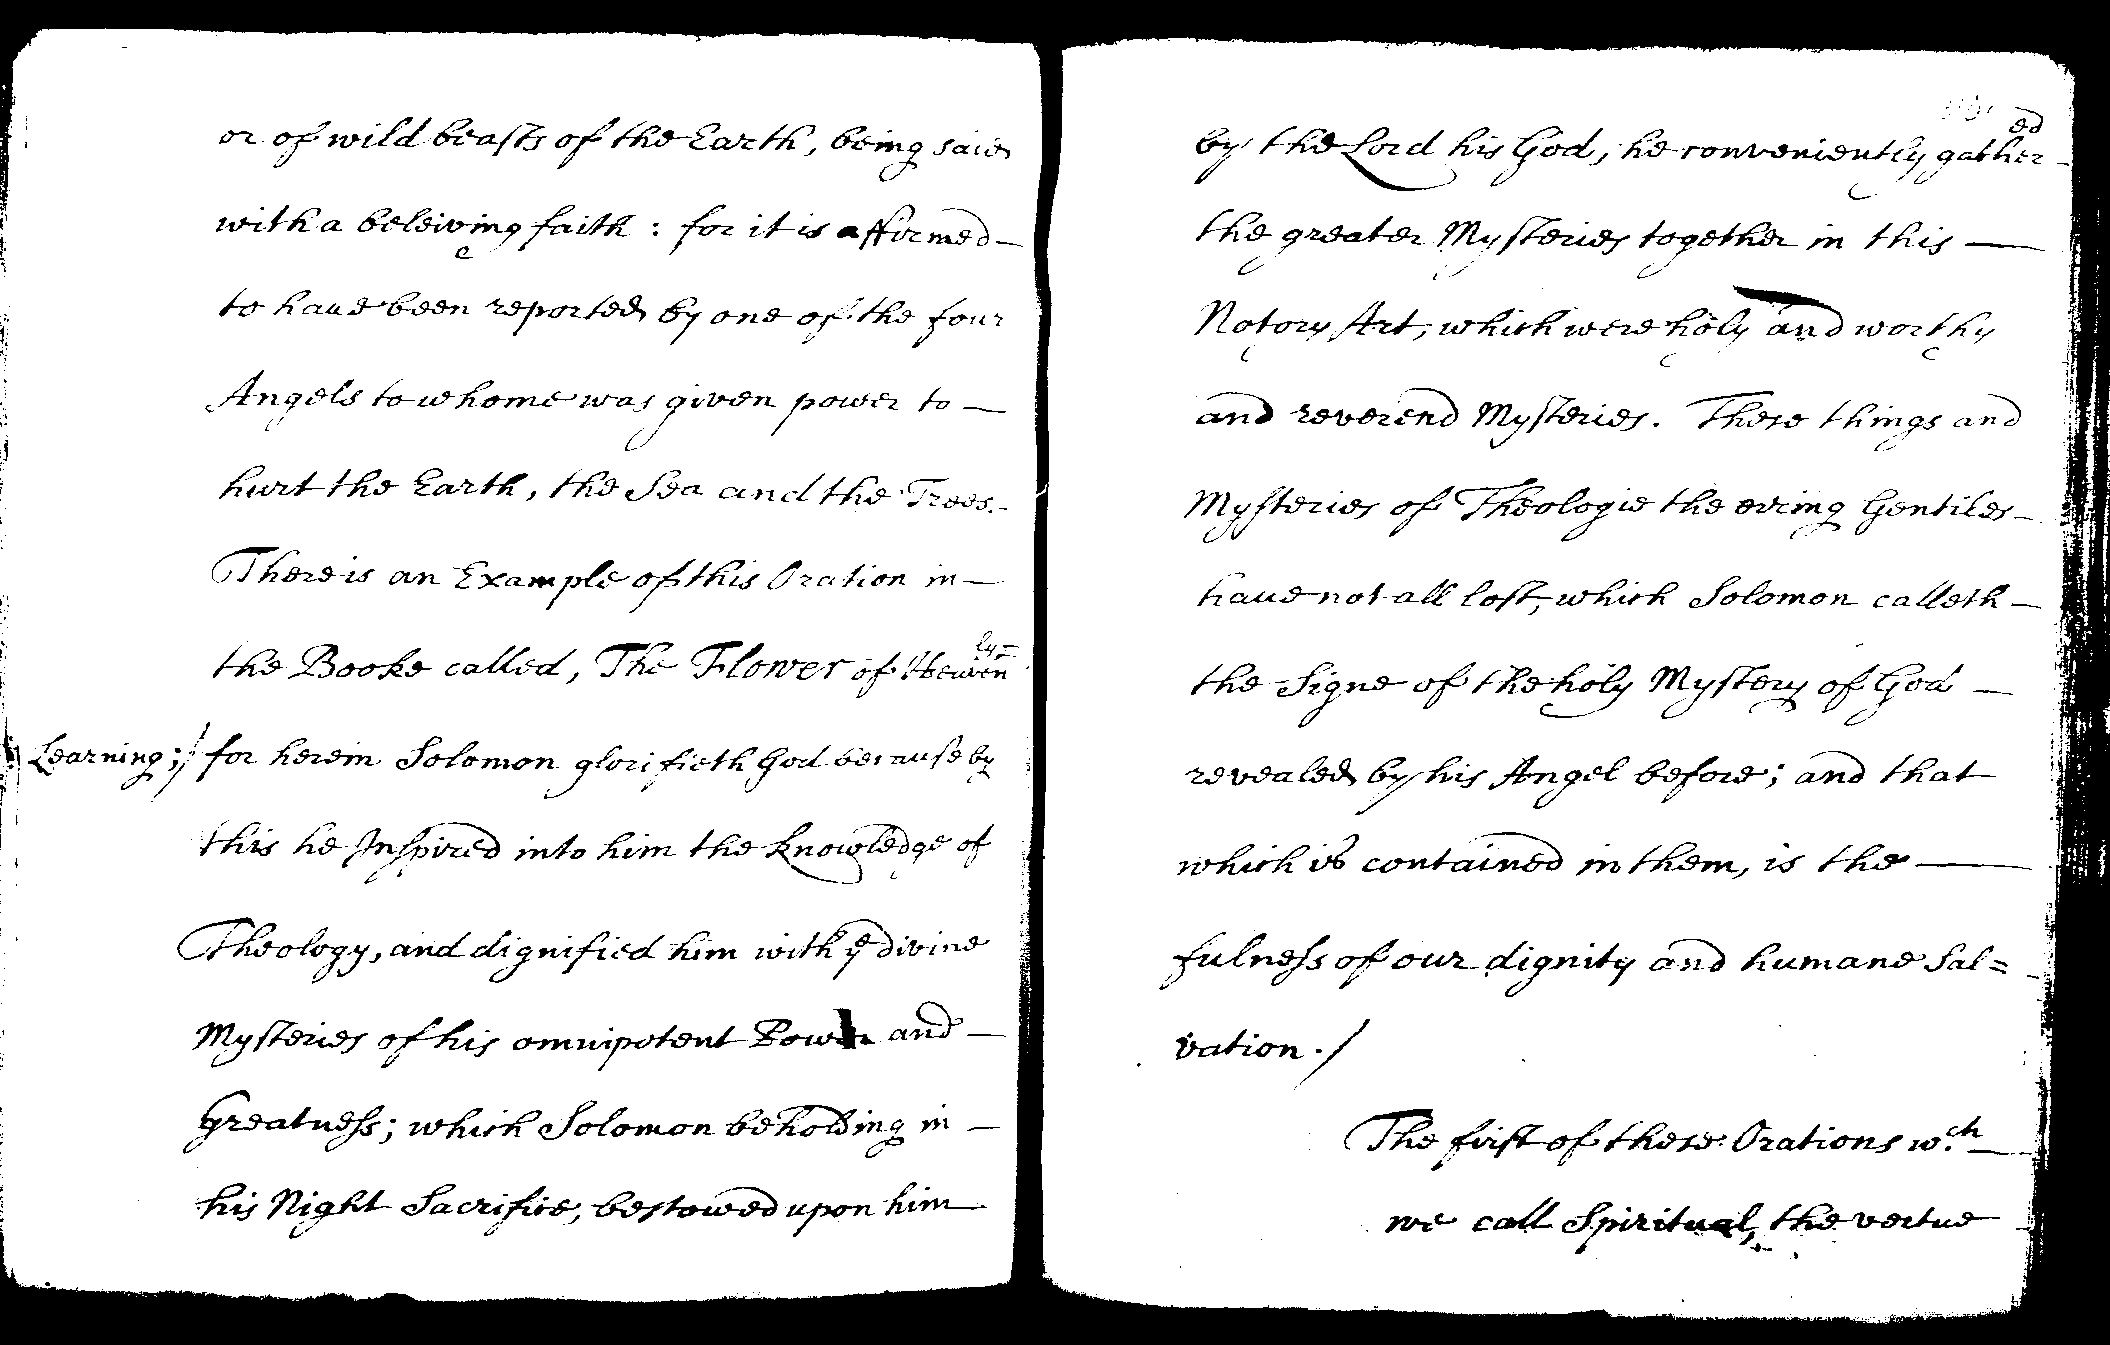 or of wild beasts of the Earth, being said
with a beleiving faith : for it is affirmed —
to have been reported by one of the four
Angels to whome was given power to —
hurt the Earth, the Sea and the Trees. -
There is an Example of this Oration in —
the Booke called, The Flower of Heavenly =
Learning ;/ for herein Solomon glorifieth God because by
this he Inspired into him the knowledge of
Theology, and dignified him with ye divine
Mysteries of his omnipotent Power and —
Greatness; which Solomon beholding in —
his Night Sacrifice, bestowed upon him
by the Lord his God, he conveniently gathered
the greater Mysteries together in this —
Notory Art, which were holy and worthy
and reverend Mysteries. These things and
Mysteries of Theologie the ering Gentiles —
have not all lost, which Solomon calleth —
the Signe of the holy Mystery of God —
revealed by his Angel before; and that
which is contained in them, is the —
fulness of our dignity and humane Sal=
vation ./
The first of these Orations wch —
we call Spiritual, the vertue